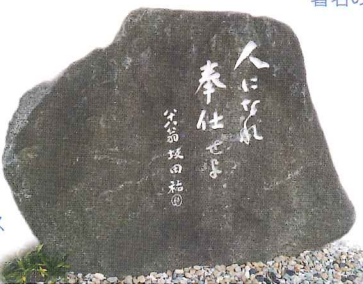 人になれ
奉仕せよ
翁 坂田祐
ス